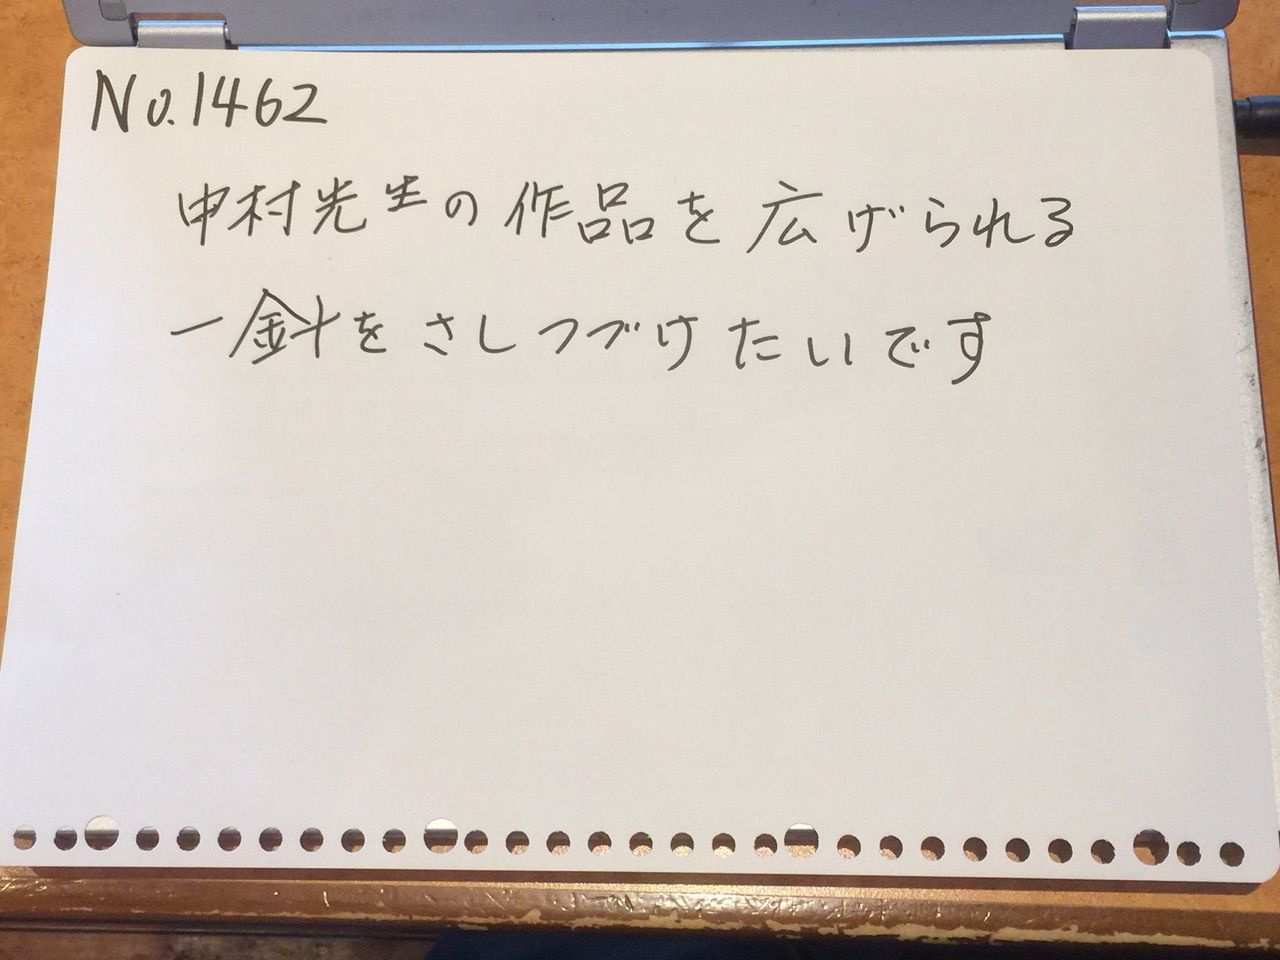 No.1462
中村先生の作品を広げられる
一針をさしつづけたいです